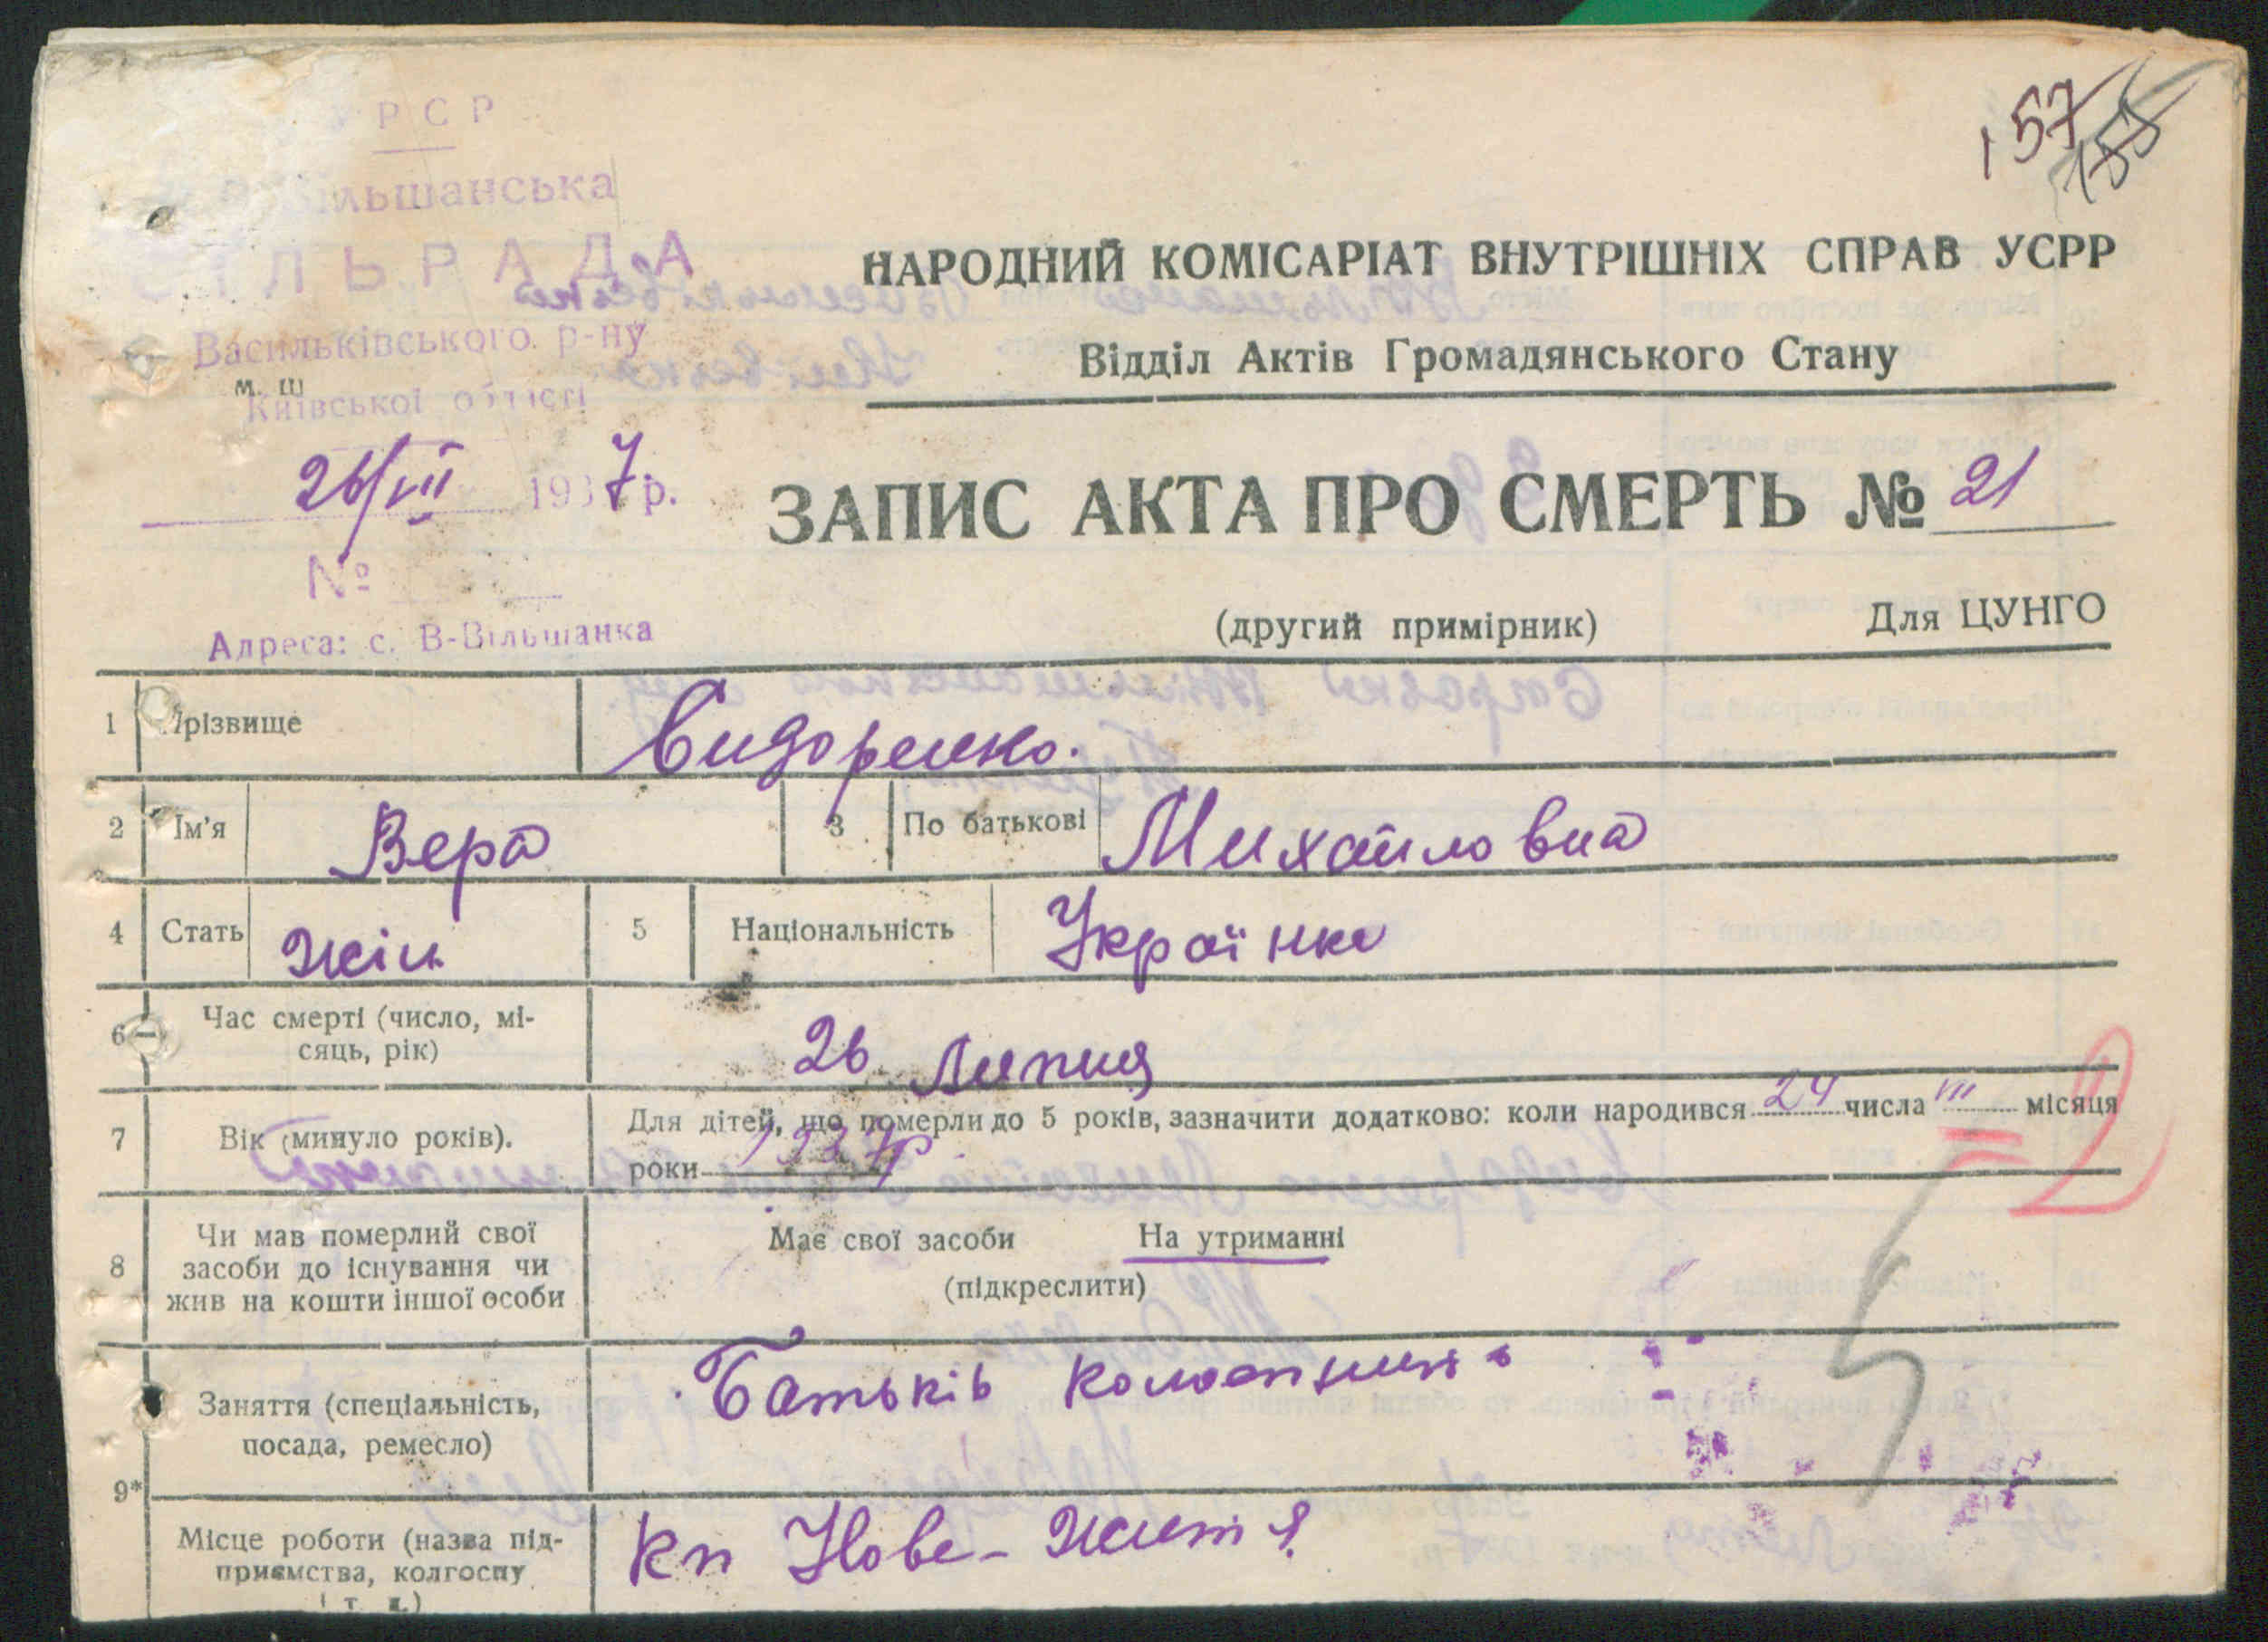 УРСР
В-Вільшанська
СІЛЬРАДА
Васильківського р-ну
м. ш
Київської області
26/VII 1937 р.
№
Адреса: с. В-Вільшанка
157
155
НАРОДНИЙ КОМІСАРІАТ ВНУТРІШНІХ СПРАВ УСРР
Відділ Актів Громадянського Стану
ЗАПИС АКТА ПРО СМЕРТЬ № 21
(другий примірник) Для ЦУНГО
1 Прізвище Сидоренко.
2 Ім'я Вера 3 По батькові Михайловна
4 Стать жін 5 Національність Українка
6 Час смерті (число, мі-
сяць, рік) 26 Липня
7 Вік (минуло років). Для дітей, що померли до 5 років, зазначити додатково: коли народився 24 числа III місяця
роки 1937р.
= 2
8 Чи мав померлий свої
засоби до існування чи
жив на кошти іншої особи
Має свої засоби На утриманні
(підкреслити)
9* Заняття (спеціальність,
посада, ремесло)
Батьків колгоспник
Місце роботи (назва під-
приємства, колгоспу
і т. д.)
кп Нове-Життя